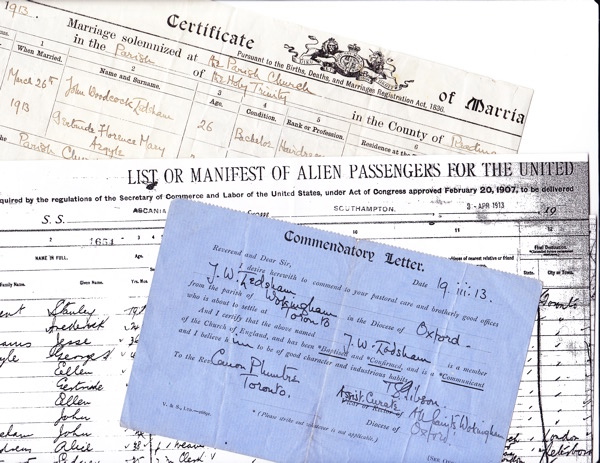 1913.
Certificate
Marriage solemnized at The Parish Church
in the Parish of The Holy Trinity
Pursuant to the Births, Deaths, and Marriages Registration Act, 1836.
of Marria
in the County of
1
When Married.
2
Name and Surname.
3
Age.
4
Condition.
5
Rank or Profession.
6
Residence at the
March 26th
1913
John Woodcock Ledsham
Gertrude Florence Mary
Argyle
26
Bachelor
the Parish Chu
LIST OR MANIFEST OF ALIEN PASSENGERS FOR THE UNITED
quired by the regulations of the Secretary of Commerce and Labor of the United States, under Act of Congress approved February 20, 1907, to be delivered
S. S.
ASCANIA
SOUTHAMPTON.
3 - APR 1913
, 19
2
3
NAME IN FULL.
Family Name.
Given Name.
Age.
Yrs. Mos.
Final Destination.
State.
City or Town.
Stanley
Frederick
Jesse
George
Ellen
Gertrude
Ellen
John
John
Alice
London
Commendatory Letter.
Date 19.iii.13.
Reverend and Dear Sir,
I desire herewith to commend to your pastoral care and brotherly good offices
J. W. Ledsham
from the parish of Wokingham in the Diocese of Oxford
who is about to settle at Toronto
And I certify that the above named J. W. Ledsham is a member
of the Church of England, and has been *Baptised and *Confirmed, and is a *Communicant
and I believe him to be of good character and industrious habits.
To the Rev. Canon Plumtre
Toronto.
T. Gibson
Assist. Curate All Saints Wokingham
Diocese of Oxford.
(*Please strike out whatever is not applicable.)